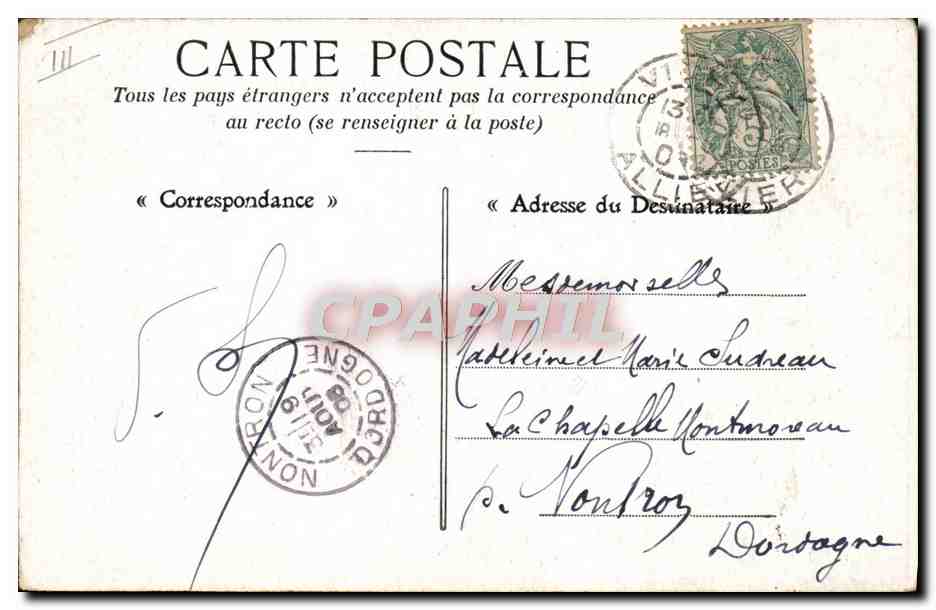 III
CARTE POSTALE
Tous les pays étrangers n'acceptent pas la correspondance
au recto (se renseigner à la poste)
« Correspondance »
« Adresse du Destinataire »
POSTES
ALLIER
Mesdemoiselles
Madeleine et Marie Sudreau
La Chapelle Montmoreau
par Nontron
Dordogne
NONTRON
DORDOGNE
AOUT
08
CPAPHIL